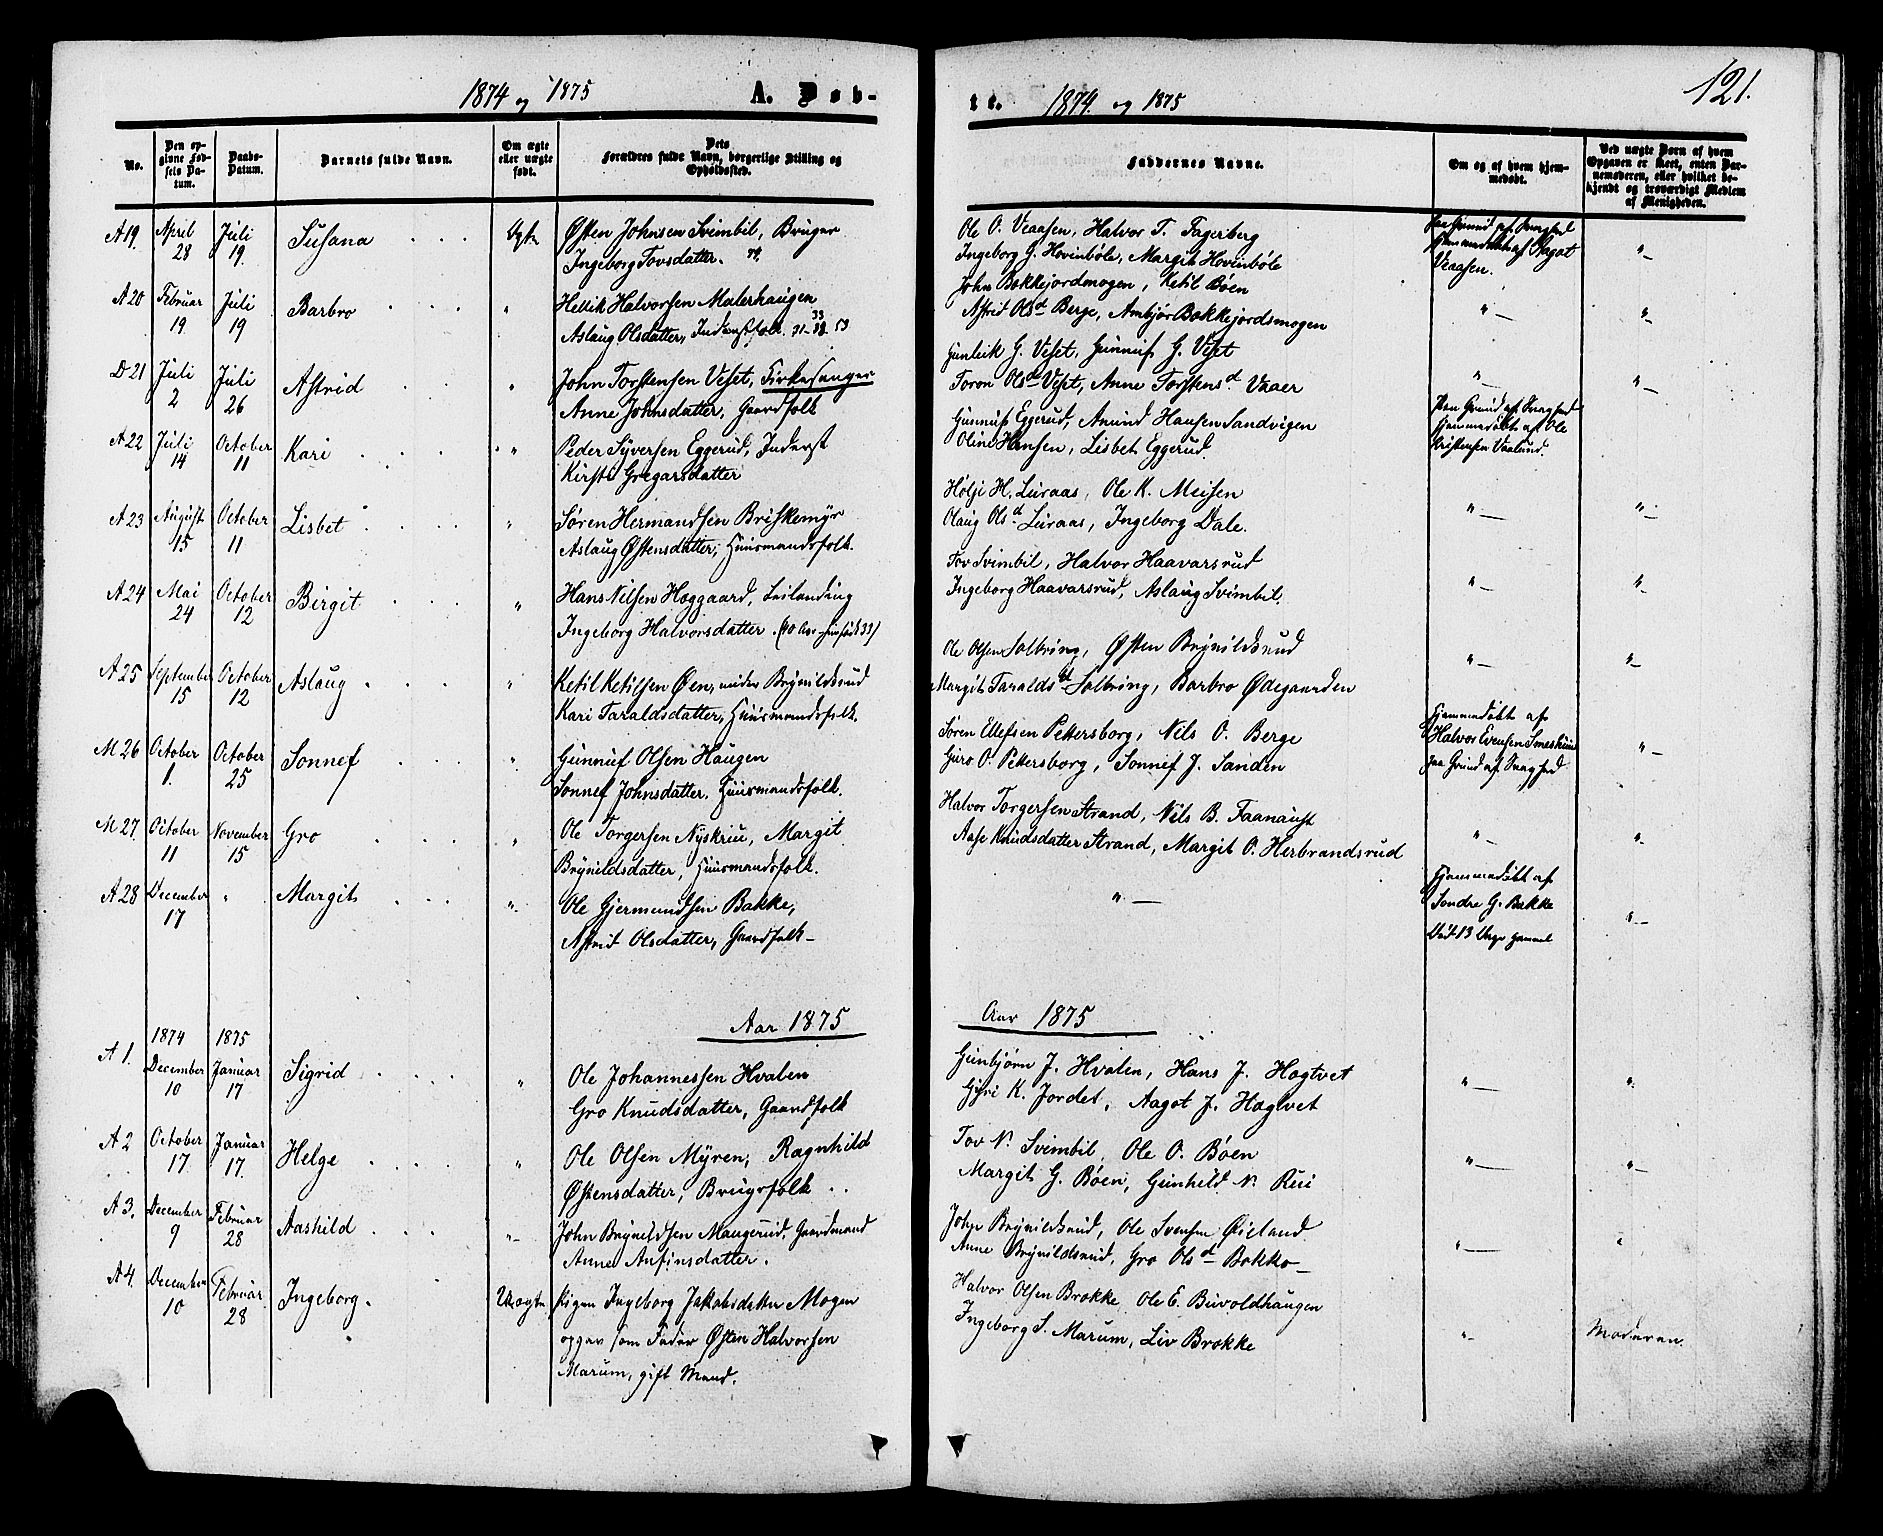 1874 og 1875 A. Døb-
No.
Den op-
givne Fød-
sels Da-
tum.
Daabs-
Datum.
Barnets fulde Navn.
Om ægte
eller uægte
født.
Dets
Forældres fulde Navn, borgerlige Stilling og
Opholdssted.
A 19. April 28 Juli 19. Susana Ægte Østen Johnsen Svimbil, Bruger
Ingeborg Tovsdatter.
A 20 Februar 19. Juli 19 Barbro " Hellik Halvorsen Malerhaugen
Aslaug Olsdatter, Inderstfolk.
D 21 Juli 2 Juli 26 Astrid " John Torstensen Veset, Kirkesanger
Anne Johnsdatter, Gaardfolk
A 22 Juli 14 October 11 Kari " Peder Syversen Eggerud, Inderst
Kirsti Gregarsdatter
A 23 August 15 October 11 Lisbet " Søren Hermandsen Briskemyr
Aslaug Østensdatter, Huusmandsfolk.
A 24 Mai 24 October 12 Birgit " Hans Nilsen Høggaard, Leilending
Ingeborg Halvorsdatter
A 25 September 15 October 12 Aslaug " Ketil Ketilsen Øen, under Brynildsrud
Kari Taraldsdatter, Huusmandsfolk.
M 26 October 1. October 25 Sonnef " Gunnuf Olsen Haugen
Sonnef Johnsdatter, Huusmandsfolk.
M 27. October 11 November 15 Gro " Ole Torgersen Nyskriu, Margit
Brynildsdatter, Huusmandsfolk.
A 28 December 17 " Margit " Ole Gjermundsen Bakke,
Astrid Olsdatter, Gaardfolk
Aar 1875
1874 1875
A 1. December 10 Januar 17 Sigrid " Ole Johannessen Hvalen
Gro Knudsdatter, Gaardfolk
A 2 October 17. Januar 17. Helge " Ole Olsen Myren, Ragnhild
Østensdatter, Brugsfolk
A 3. December 9 Februar 28 Aashild " John Brynildsen Maugerud, Gaardmand
Anne Anfinsdatter.
A 4. December 10 Februar 28 Ingeborg. Uægte Pigen Ingeborg Jakobsdatter Mogen
opgav som Fader Østen Halvorsen
Marum, gift Mand.
te. 1874. og 1875 121.
Faddernes Navne.
Om og af hvem hjem-
medøbt.
Ved uægte Børn af hvem
Opgaven er skeet, enten Bar-
nemoderen, eller hvilket be-
kjendt og troværdigt Medlem
af Menigheden.
Ole O. Veaasen, Halvor T. Fagerberg paa Grund af Svaghed
Ingeborg G. Hovinbøle, Margit Hovinbøle hjemmedøbt af Aagot "
Veaasen.
John Bakkejordmogen, Ketil Bøen
Astrid Olsd Berge, Ambjør Bakkejordsmogen " "
Gunleik G. Veset, Gunnuf G. Veset
Toron Olsd Veset, Anne Torstensd Vaaer " "
Gunnuf Eggerud, Amund Hansen Sandvigen paa Grund af Svaghed
Oline Hansen, Lisbet Eggerud. hjemmedøbt af Ole
Kristensen Vaalund.
Høljе H. Luraas, Ole K. Meisen
Olaug Olsd Luraas, Ingeborg Dale. " "
Tov Svimbil, Halvor Haavarsrud
Ingeborg Haavarsrud, Aslaug Svimbil. " "
Ole Olsen Solbring, Østen Brynildsrud
Margit Taraldsd Solbring, Barbro Ødegaarden " "
Søren Ellefsen Pettersborg, Nils O. Berge hjemmedøbt af
Guro O. Pettersborg, Sonnef J. Sanden Halvor Evensen "
paa Grund af Svaghed
Halvor Torgersen Strand, Nils B. Faanaust
Aase Knudsdatter Strand, Margit O. Herbrandsrud " "
" hjemmedøbt af
Sondre G. Bakke "
Ved 13 Uger gammel
Aar 1875
Gunbjørn J. Hvalen, Hans J. Hagtvet
Gyri K. Jordet, Aagot J. Hagtvet " "
Tov N. Svimbil, Ole O. Bøen
Margit G. Bøen, Gunhild N. Rui " "
John Brynildsrud, Ole Svensen Øieland
Anne Brynildsrud, Gro Olsd Bakko " "
Halvor Olsen Brokke, Ole E. Buvoldhaugen
Ingeborg S. Marum, Liv Brokke " Moderen.